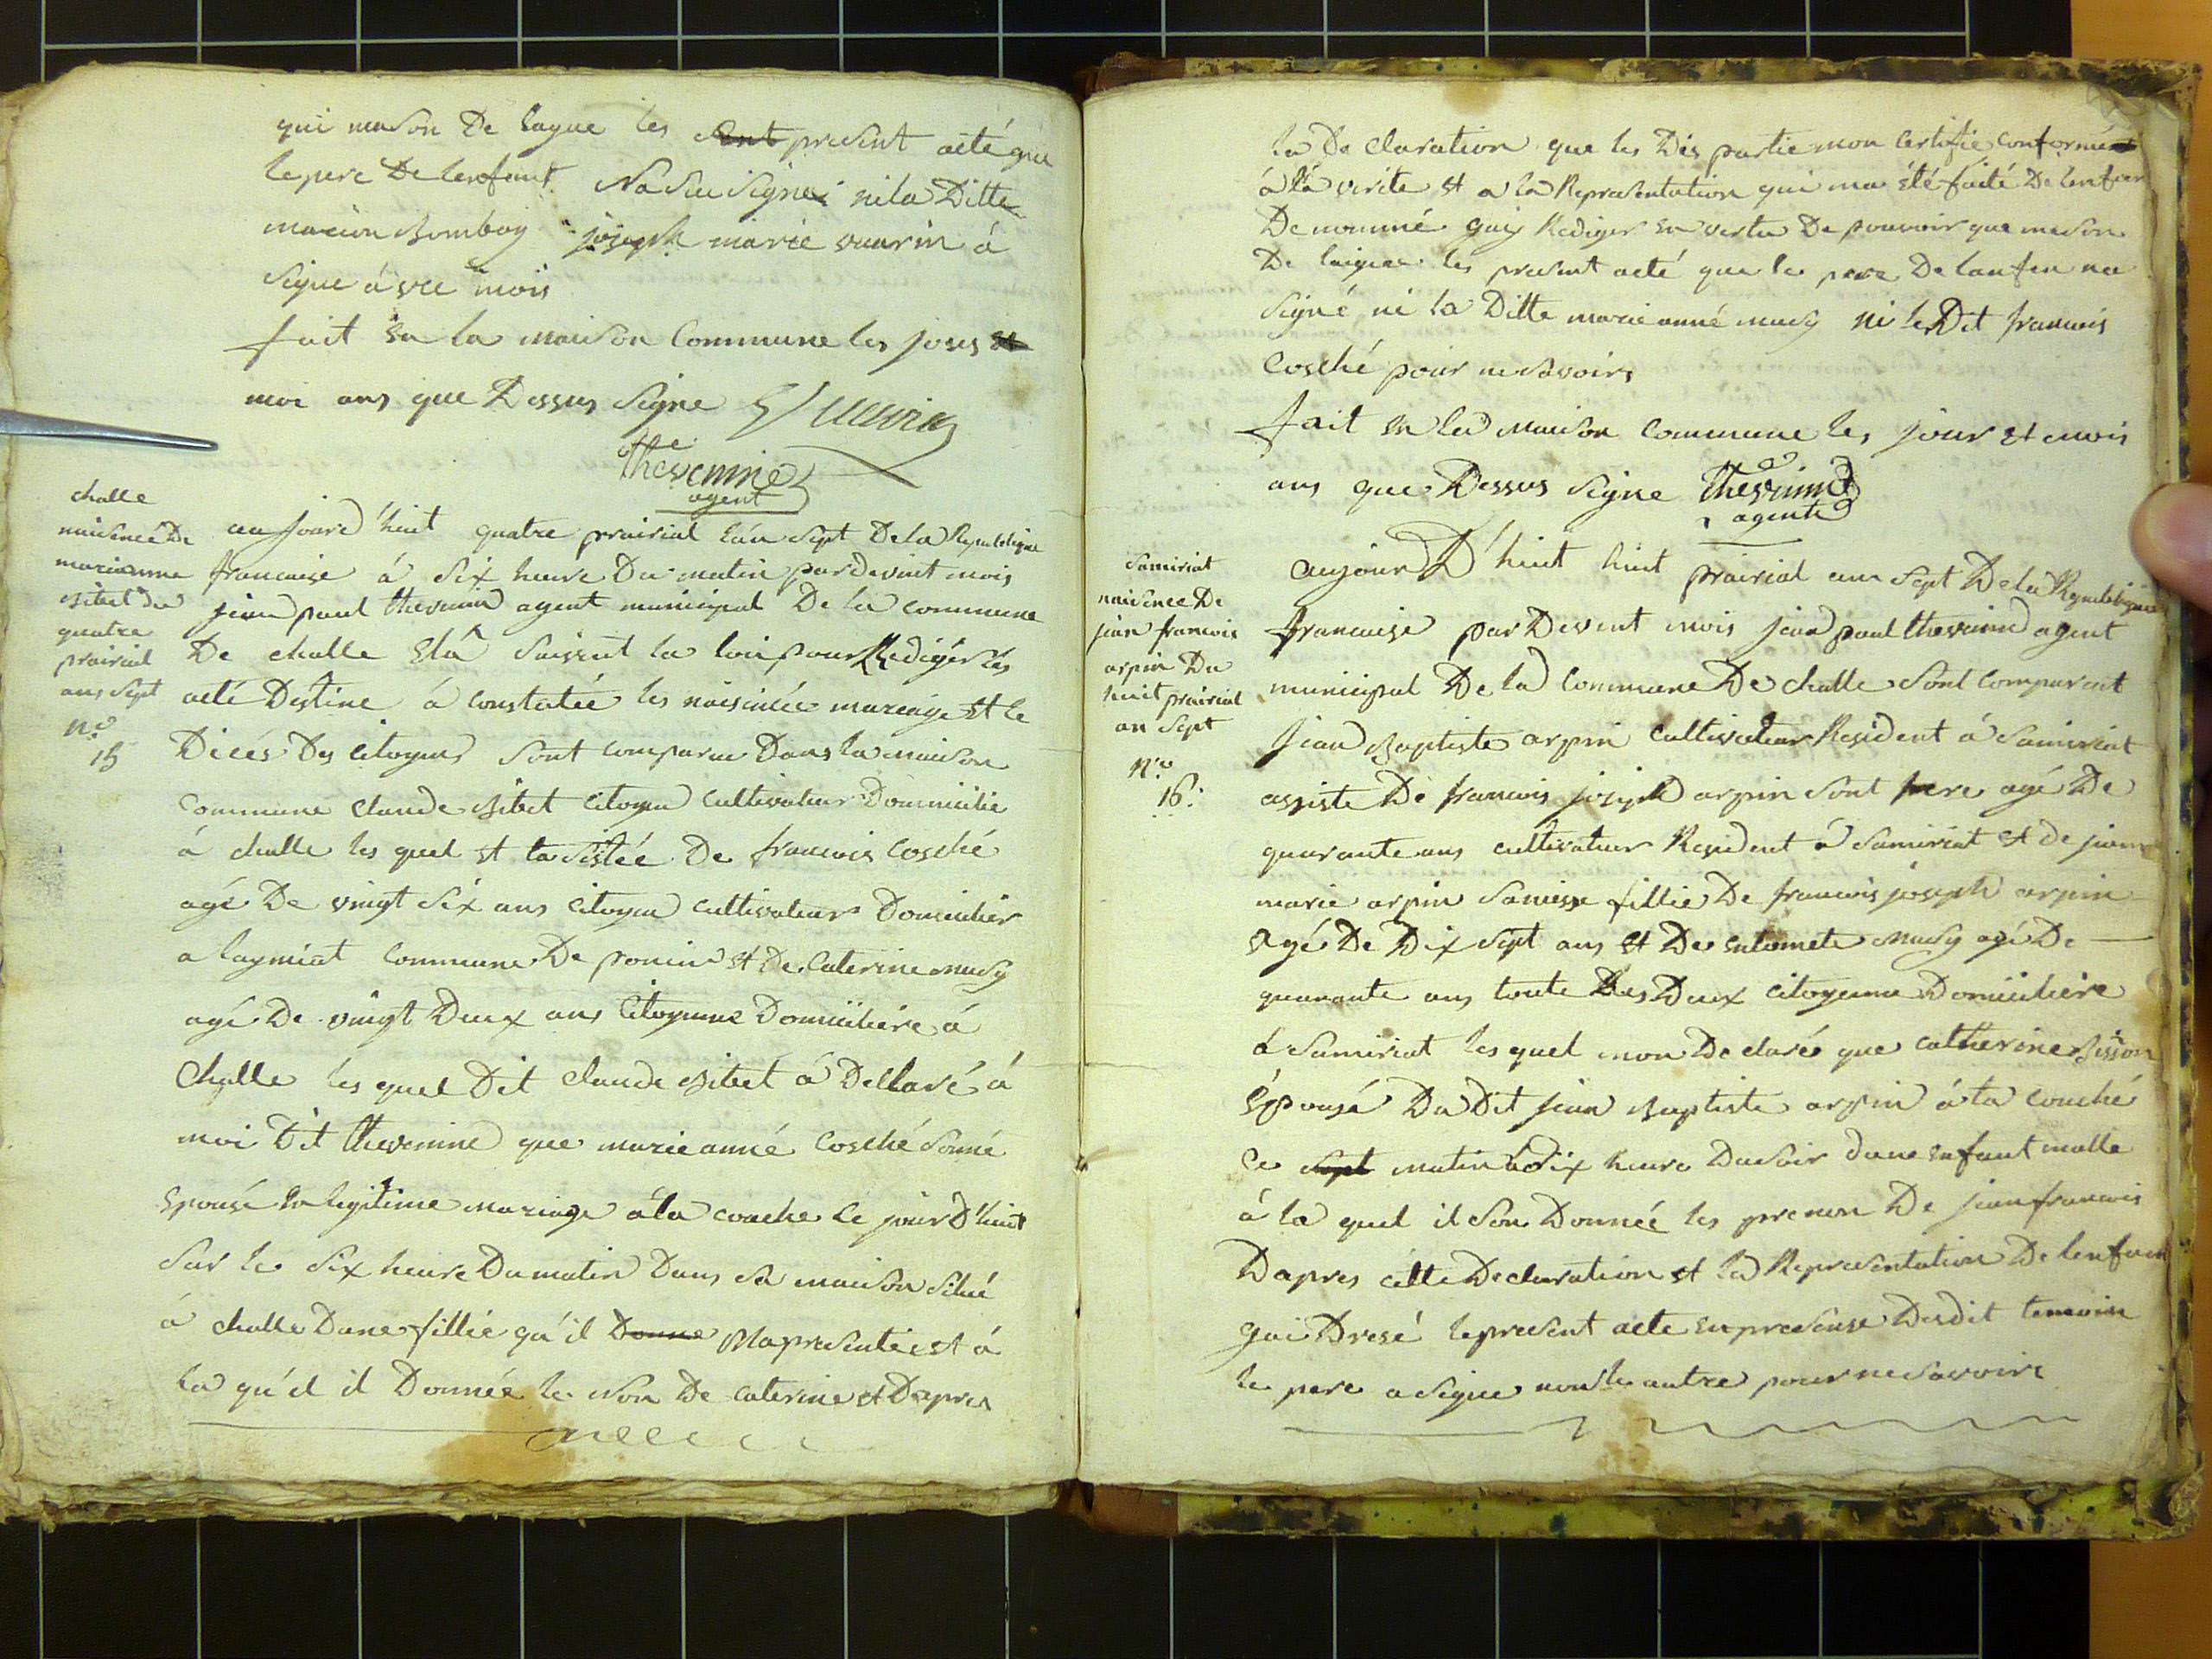 qui mason De lague les present acté que
le pere De lenfant Na Seu Signe ni la Ditte
marion Bomboy joseph marie vuarin á
Signe a vec mois
fait en la maison Commune les jours et
moi ans que Dessus Signe Vuarin
thevenine
agent
challe
naisence De
marianne
Bibet du
quatre
prairial
ans Sept
n.º
15
au jourd'huit quatre prairial l'an Sept De la Republique
francaise á Six heure Du matin par Devent mois
jean paul thevenin agent municipal De la commune
De challe Suivent la loi pour Rediger les
acté Destine á constatée les naisinée mariage et le
Dicés Des citoyens Sont comparue Dans la maison
Commune claude Bibet citoyen cultivateur Domicilie
á challe les quel et ta Sistée De francois Cosché
agé De vingt Six ans citoyen cultivateur Domicilier
a laymiat Commune De poncin et De Caterine musy
agé De vingt Deux ans Citoyenne Domicilière á
Challe les quel Dit claude Bibet á Dellaré á
moi Dit thevenine que marie anné Cosché Sonné
Epousé en legitime mariage á la couche le jourd'huit
Sur les Six heure Du matin Dans Sa maison Situé
á challe Dune fillie qu'il Donne Ma presentée et á
la qu'el il Donnée le Non De Caterine et D'apres
la De claration que les Dis partie mon Certifie Conformé
á lá verite et a la Representation qui ma été faité De lenfan
De nommé guy Rediger en vertu De pouvoir que mason
De laigue les present acté que le pere De lanfen na
Signé ni la Ditte marie anné musy ni le Dit francois
Cosché pour ne Savoirs
fait en la maison Commune les jour et mois
ans que Dessus Signe thevenine
agente
Samiriat
naisence De
jean francois
arpin Du
huit prairial
an Sept
n.º
16:
aujour D'huit huit prairial ans Sept De la Republique
francaise par Devent mois jean paul thevenine agent
municipal De la Commune De challe Sont Comparent
Jean Baptiste arpin Cultivateur Resident á Samiriat
assiste De francois joseph arpin Sont frere agé De
quarante ans cultivateur Resident á Samiriat et de jeanne
marie arpin Saniesse fillie De francois joseph arpin
agé De Dix Sept ans et De musy agé De
quarante ans toute Les Deux citoyenne Domicilière
á Samiriat les quel mon De clarée que catherine Bisson
Epousé Du Dit jean Baptiste arpin á la couché
Ce sept matin a Dix heure Du Soir dune enfant malle
á la quel il Son Donnée les prenon De jean francois
D'apres cétte Declaration et la Representation De lenfan
gai Dresé le present acte en presense Desdit temoin
le pere a Signe non le autre pour ne Savoire